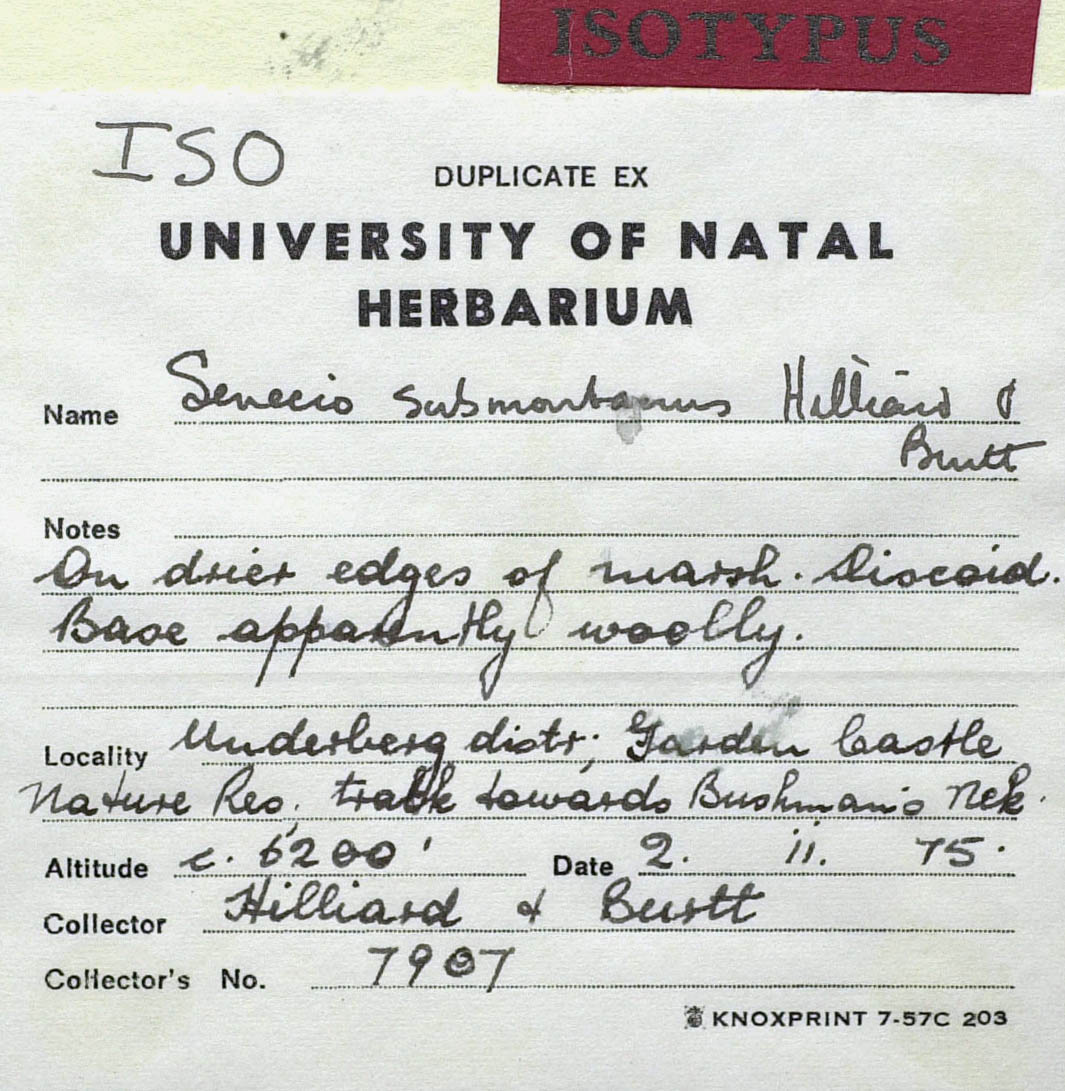 ISOTYPUS
ISO
DUPLICATE EX
UNIVERSITY OF NATAL
HERBARIUM
Name Senecio submontanus Hilliard &
Burtt
Notes
On drier edges of marsh. Discoid.
Base apparently woolly.
Locality Underberg distr; Garden Castle
Nature Res, track towards Bushman's Nek.
Altitude c. 6200' Date 2. ii. 75.
Collector Hilliard & Burtt
Collector's No. 7907
KNOXPRINT 7-57C 203